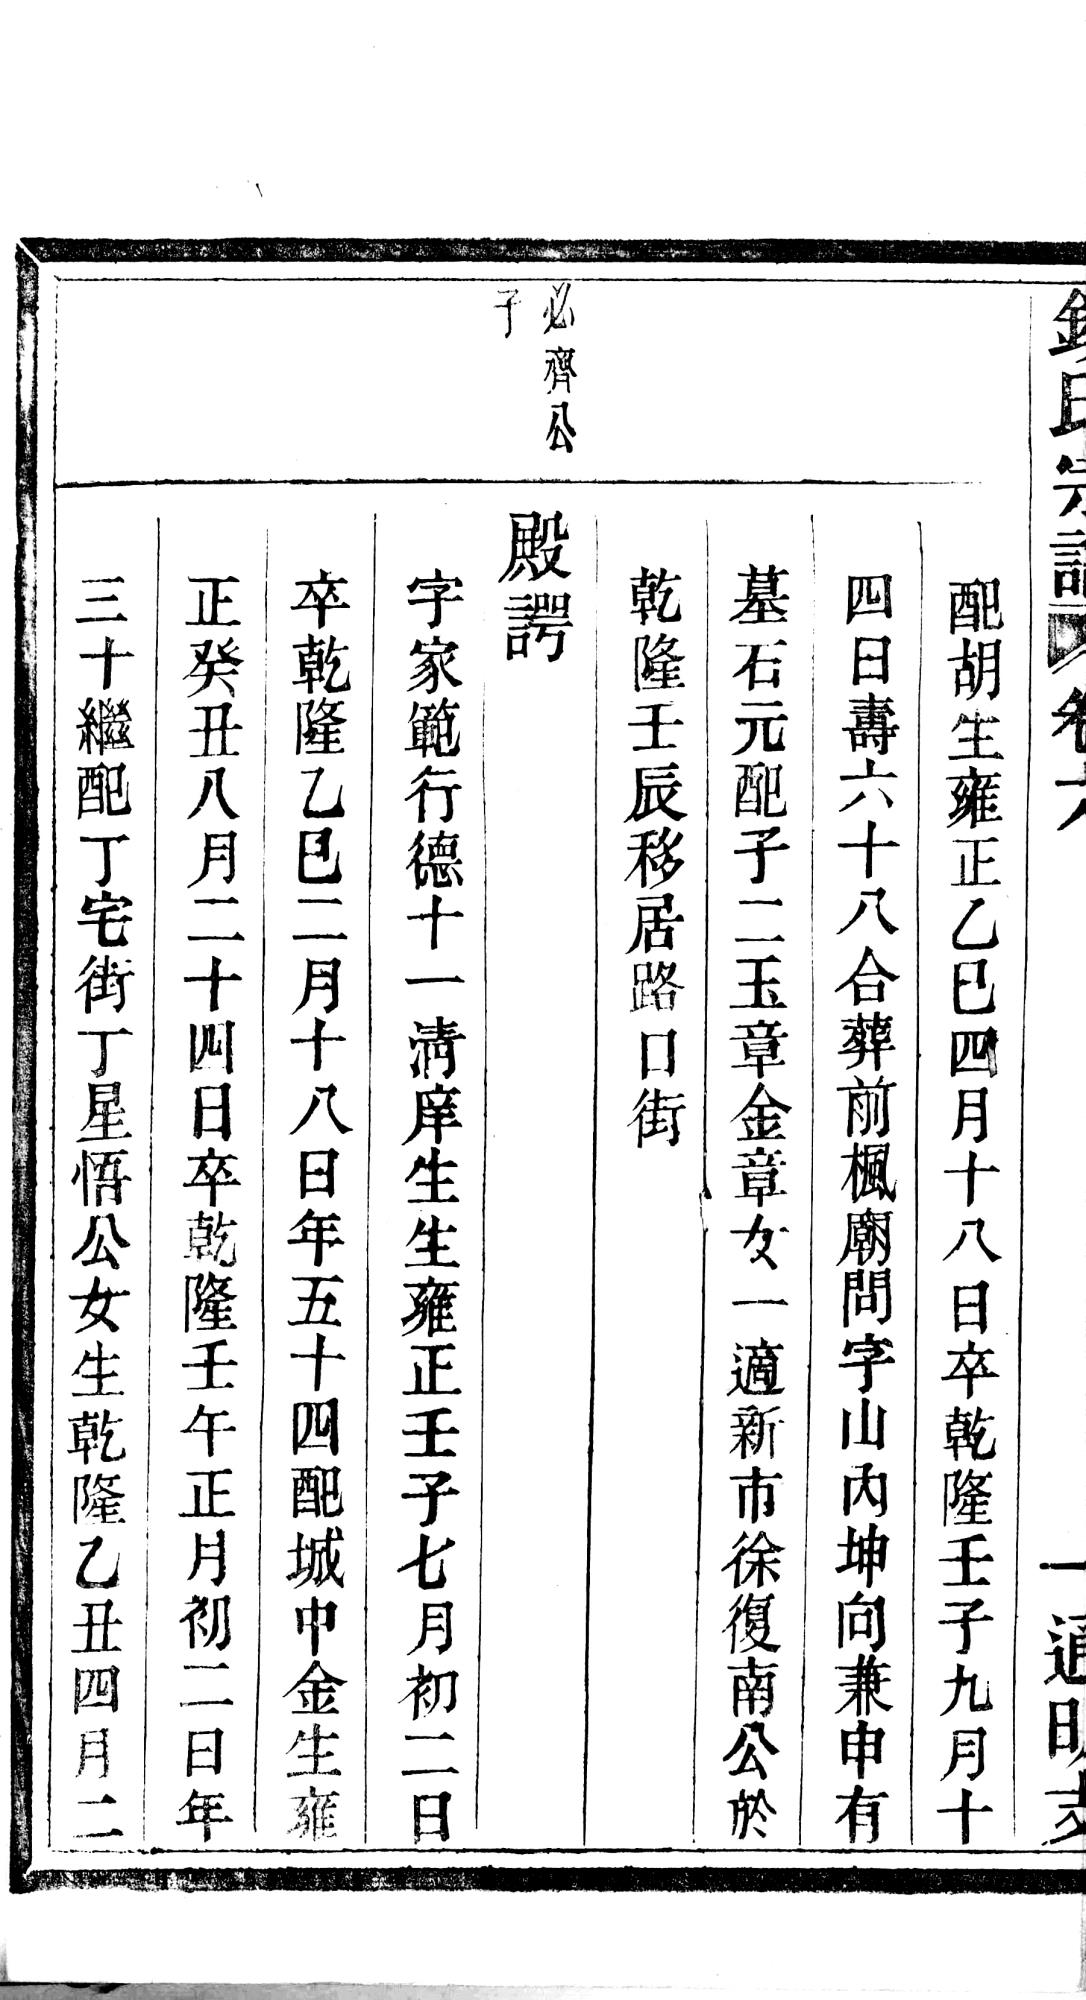 氏宗譜 卷六
一 通明支
配胡生雍正乙巳四月十八日卒乾隆壬子九月十
四日壽六十八合葬前楓廟問字山內坤向兼申有
墓石元配子二玉章金章女一適新市徐復南公於
乾隆壬辰移居路口街
必齊公
子
殿諤
字家範行德十一清庠生生雍正壬子七月初二日
卒乾隆乙巳二月十八日年五十四配城中金生雍
正癸丑八月二十四日卒乾隆壬午正月初二日年
三十繼配丁宅街丁星悟公女生乾隆乙丑四月二